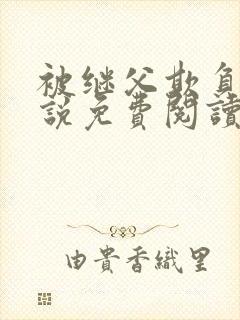 被继父欺负
説免費閱讀
由貴香織里